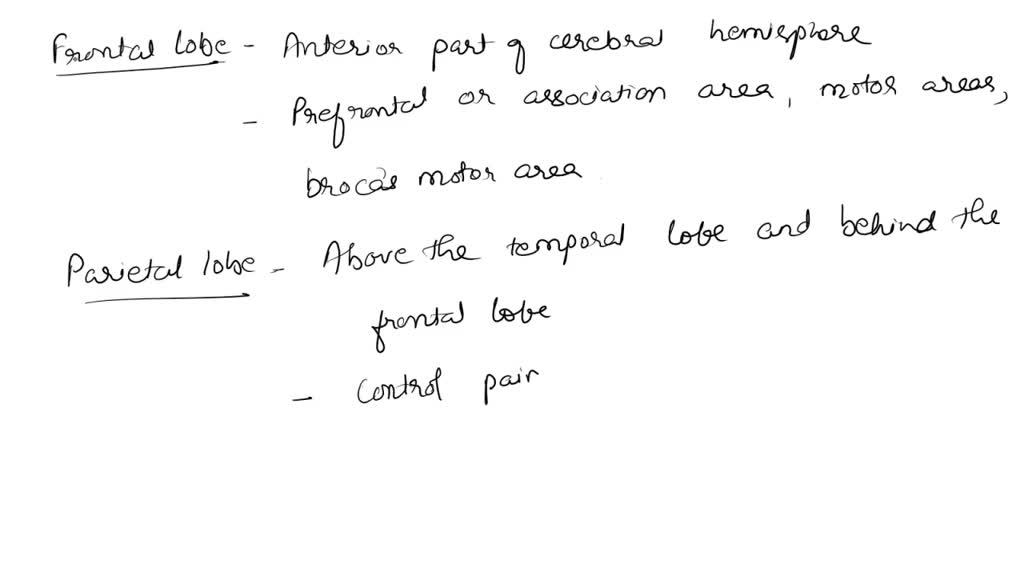 Frontal lobe - Anterior part of cerebral hemisphere
- Prefrontal or association area, motor areas,
broca's motor area
Parietal lobe - Above the temporal lobe and behind the
frontal lobe
- Control pain